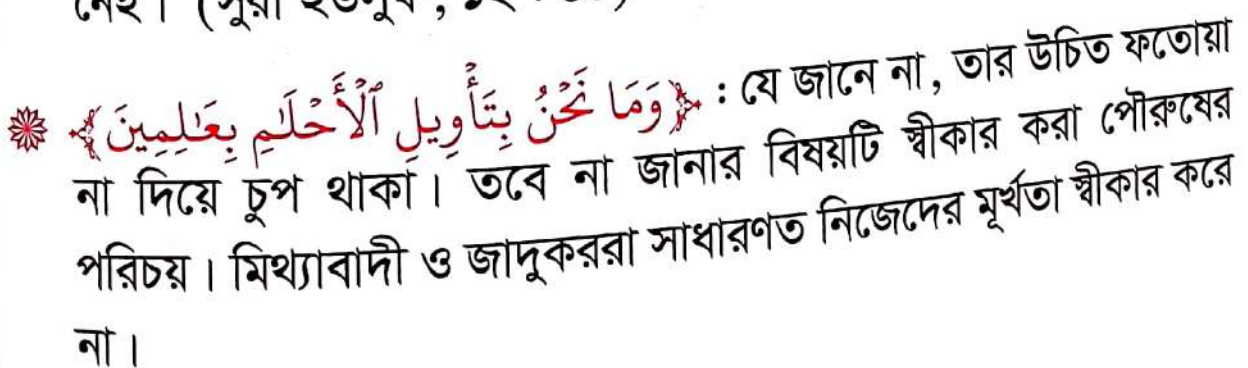 নেই। (সুরা ইউসুফ,
﴿وَمَا نَحْنُ بِتَأْوِيلِ ٱلْأَحْلَـٰمِ بِعَـٰلِمِينَ﴾ : যে জানে না, তার উচিত ফতোয়া
না দিয়ে চুপ থাকা। তবে না জানার বিষয়টি স্বীকার করা পৌরুষের
পরিচয়। মিথ্যাবাদী ও জাদুকররা সাধারণত নিজেদের মূর্খতা স্বীকার করে
না।